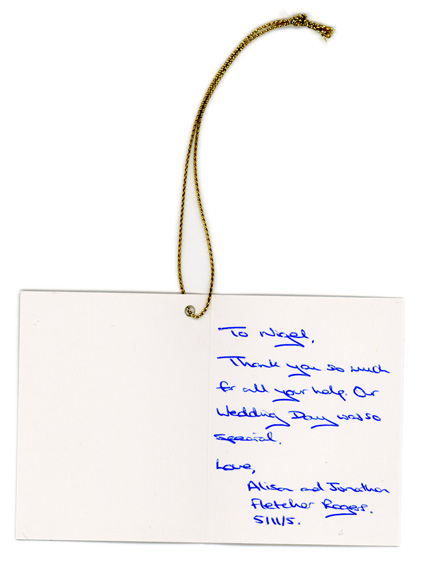 To Nigel,
Thank you so much
for all your help. Our
Wedding Day was so
special.
Love,
Alison and Jonathan
Fletcher Rogers.
5/11/5.